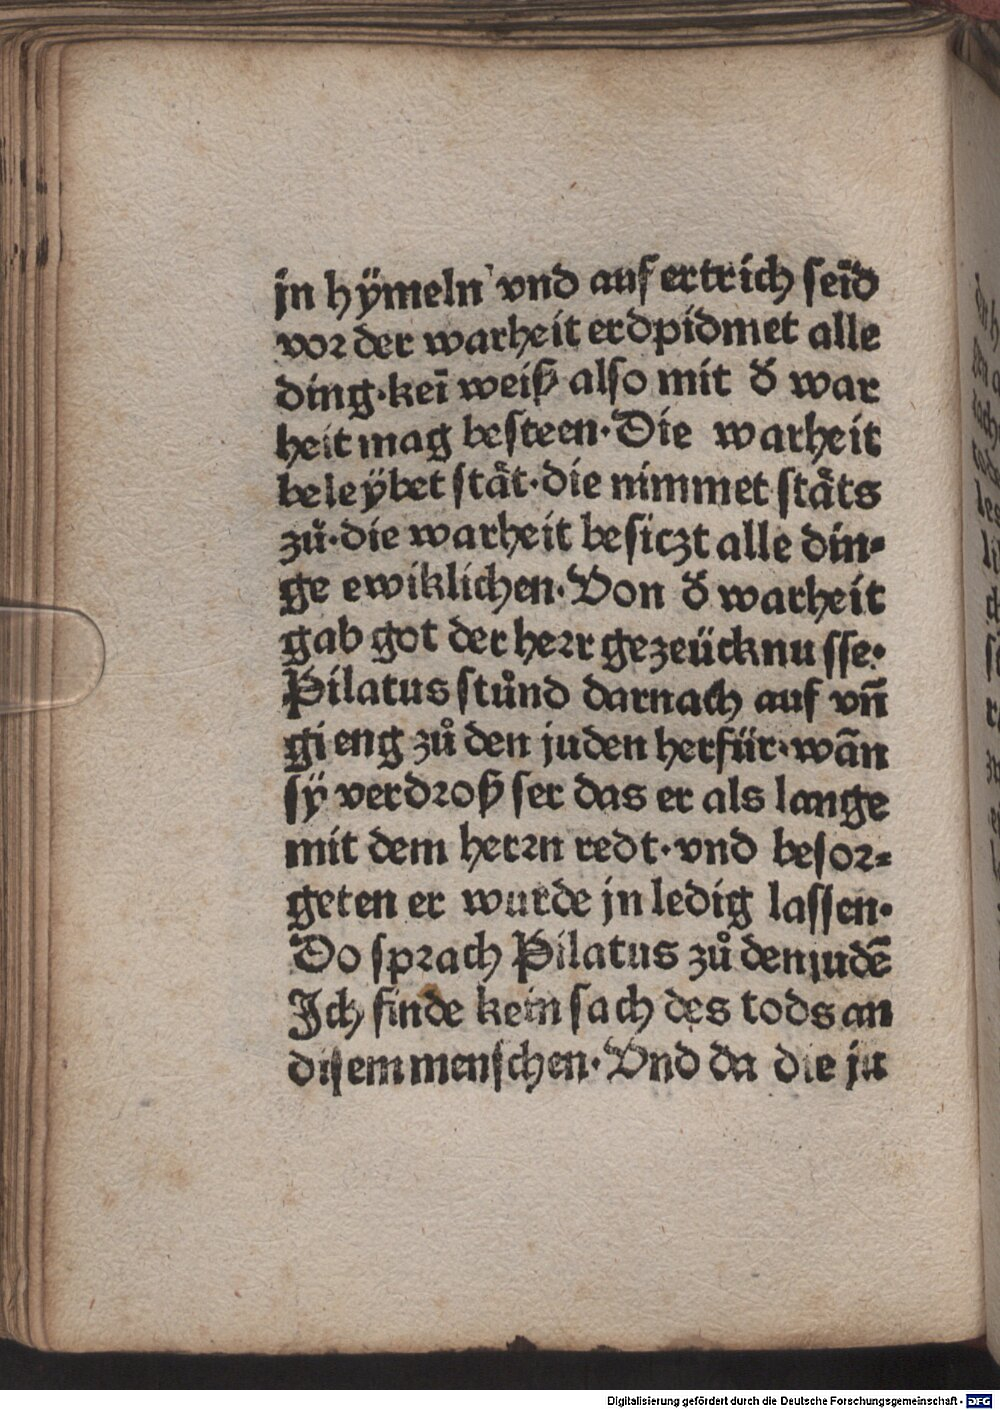 jn hÿmeln vnd auf ertrich seīd
voꝛ der warheit erdpidmet alle
ding·keī weiß also mit đ war
heit mag besteen·Die warheit
beleÿbet stät·die nimmet stäts
zů·die warheit besiczt alle din⸗
ge ewiklichen·Von đ warheit
gab got der heꝛr gezeücknusse·
Pilatus stůnd darnach auf vn̄
gieng zů den juden herfür·wān
sÿ verdꝛoß ser das er als lange
mit dem herꝛn redt·vnd besoꝛ⸗
geten er wurde jn ledig lassen·
Do spꝛach Pilatus zů den judē
Jch finde kein sach des tods an
disem menschen·Vnd da die ju
Digitalisierung gefördert durch die Deutsche Forschungsgemeinschaft - DFG